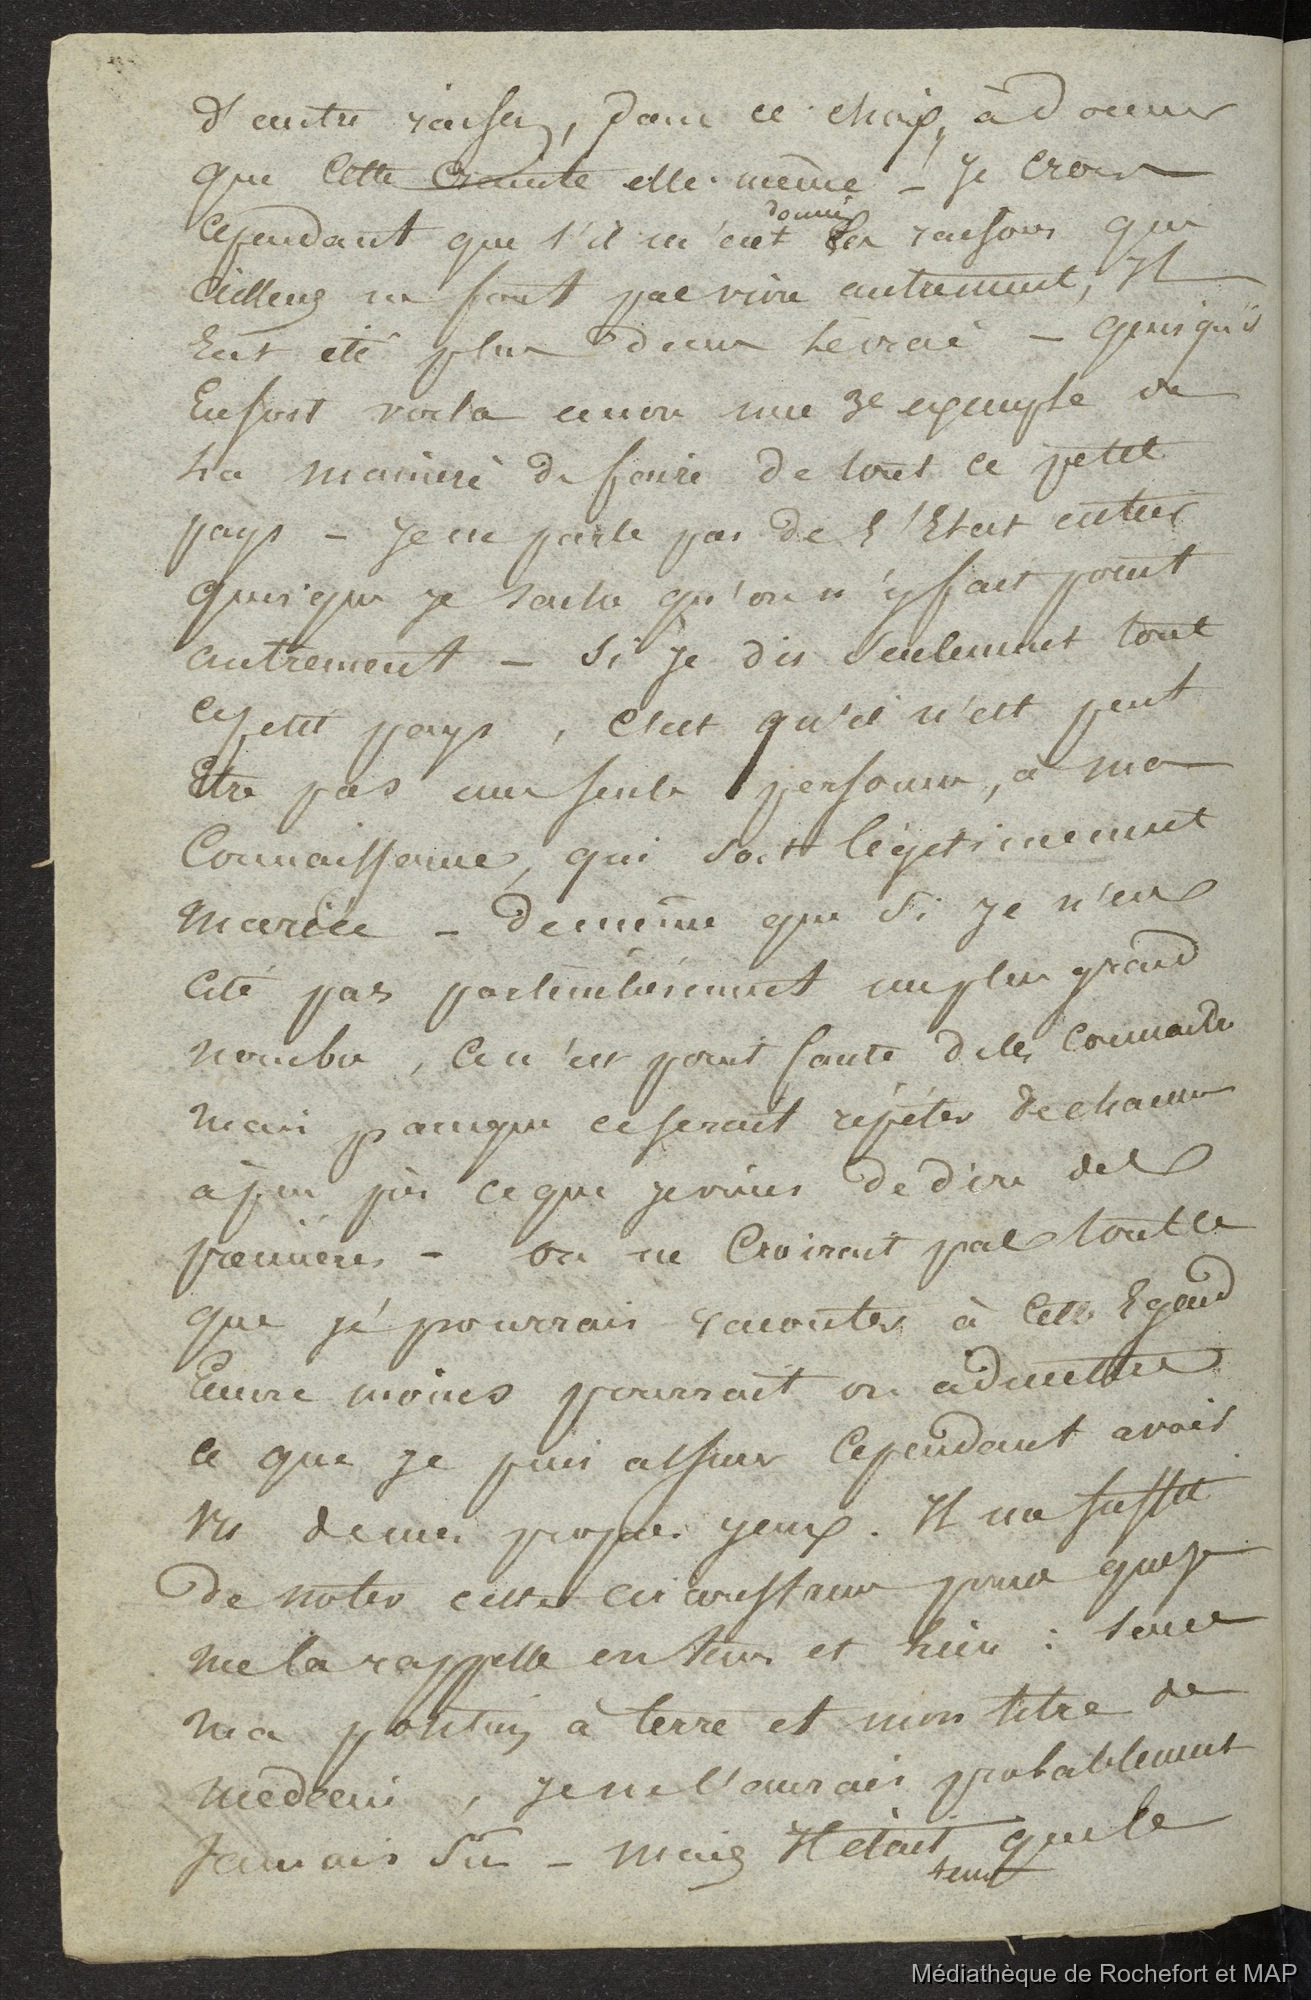 d'autre raison, dans ce choix, à donner
que cette crainte elle même - Je crois
cependant que s'il m'eut donné les raisons qui
ailleurs ne font pas vivre autrement, Il
Eut été plus dans le vrai - quoiqu'il
En soit voila encore une 3e exemple de
la manière de faire de tout ce petit
pays - Je ne parle pas de l'Etat entier
quoique je sache qu'on n'y fait point
autrement - Si je dis seulement tout
ce petit pays, c'est qu'il n'est peut
Etre pas une seule personne, à ma
Connaissance, qui soit légitimement
mariée - de même que si je n'en
cite pas particulièrement un plus grand
nombre, ce n'est point faute de les connaitre
mais parceque ce serait répéter de chacun
à peu près ce que je viens de dire des
premières - on ne croirait pas tout ce
que je pourrais raconter à cette Egard
Encore moins pourrait on admettre
ce que je puis assurer cependant avoir
vu de mes propres yeux. Il me suffit
de noter cette circonstance pour que je
me la rappelle en tems et lieu : sans
ma position à terre et mon titre de
médecin, je ne l'aurais probablement
Jamais su - mais Il était que le
tems
Médiathèque de Rochefort et MAP